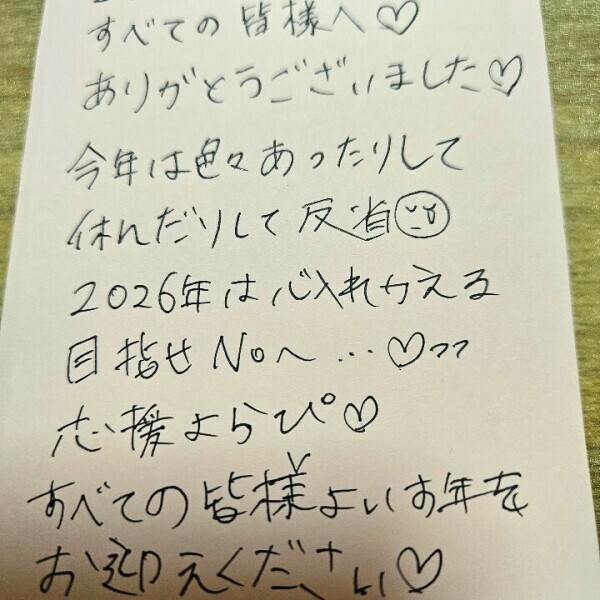 すべての皆様へ♡
ありがとうございました♡
今年は色々あったりして
休んだりして反省
2026年は心入れかえる
目指せNo へ…♡ﾌﾌ
応援よらぴ♡
すべての皆様よいお年を
お迎えください♡